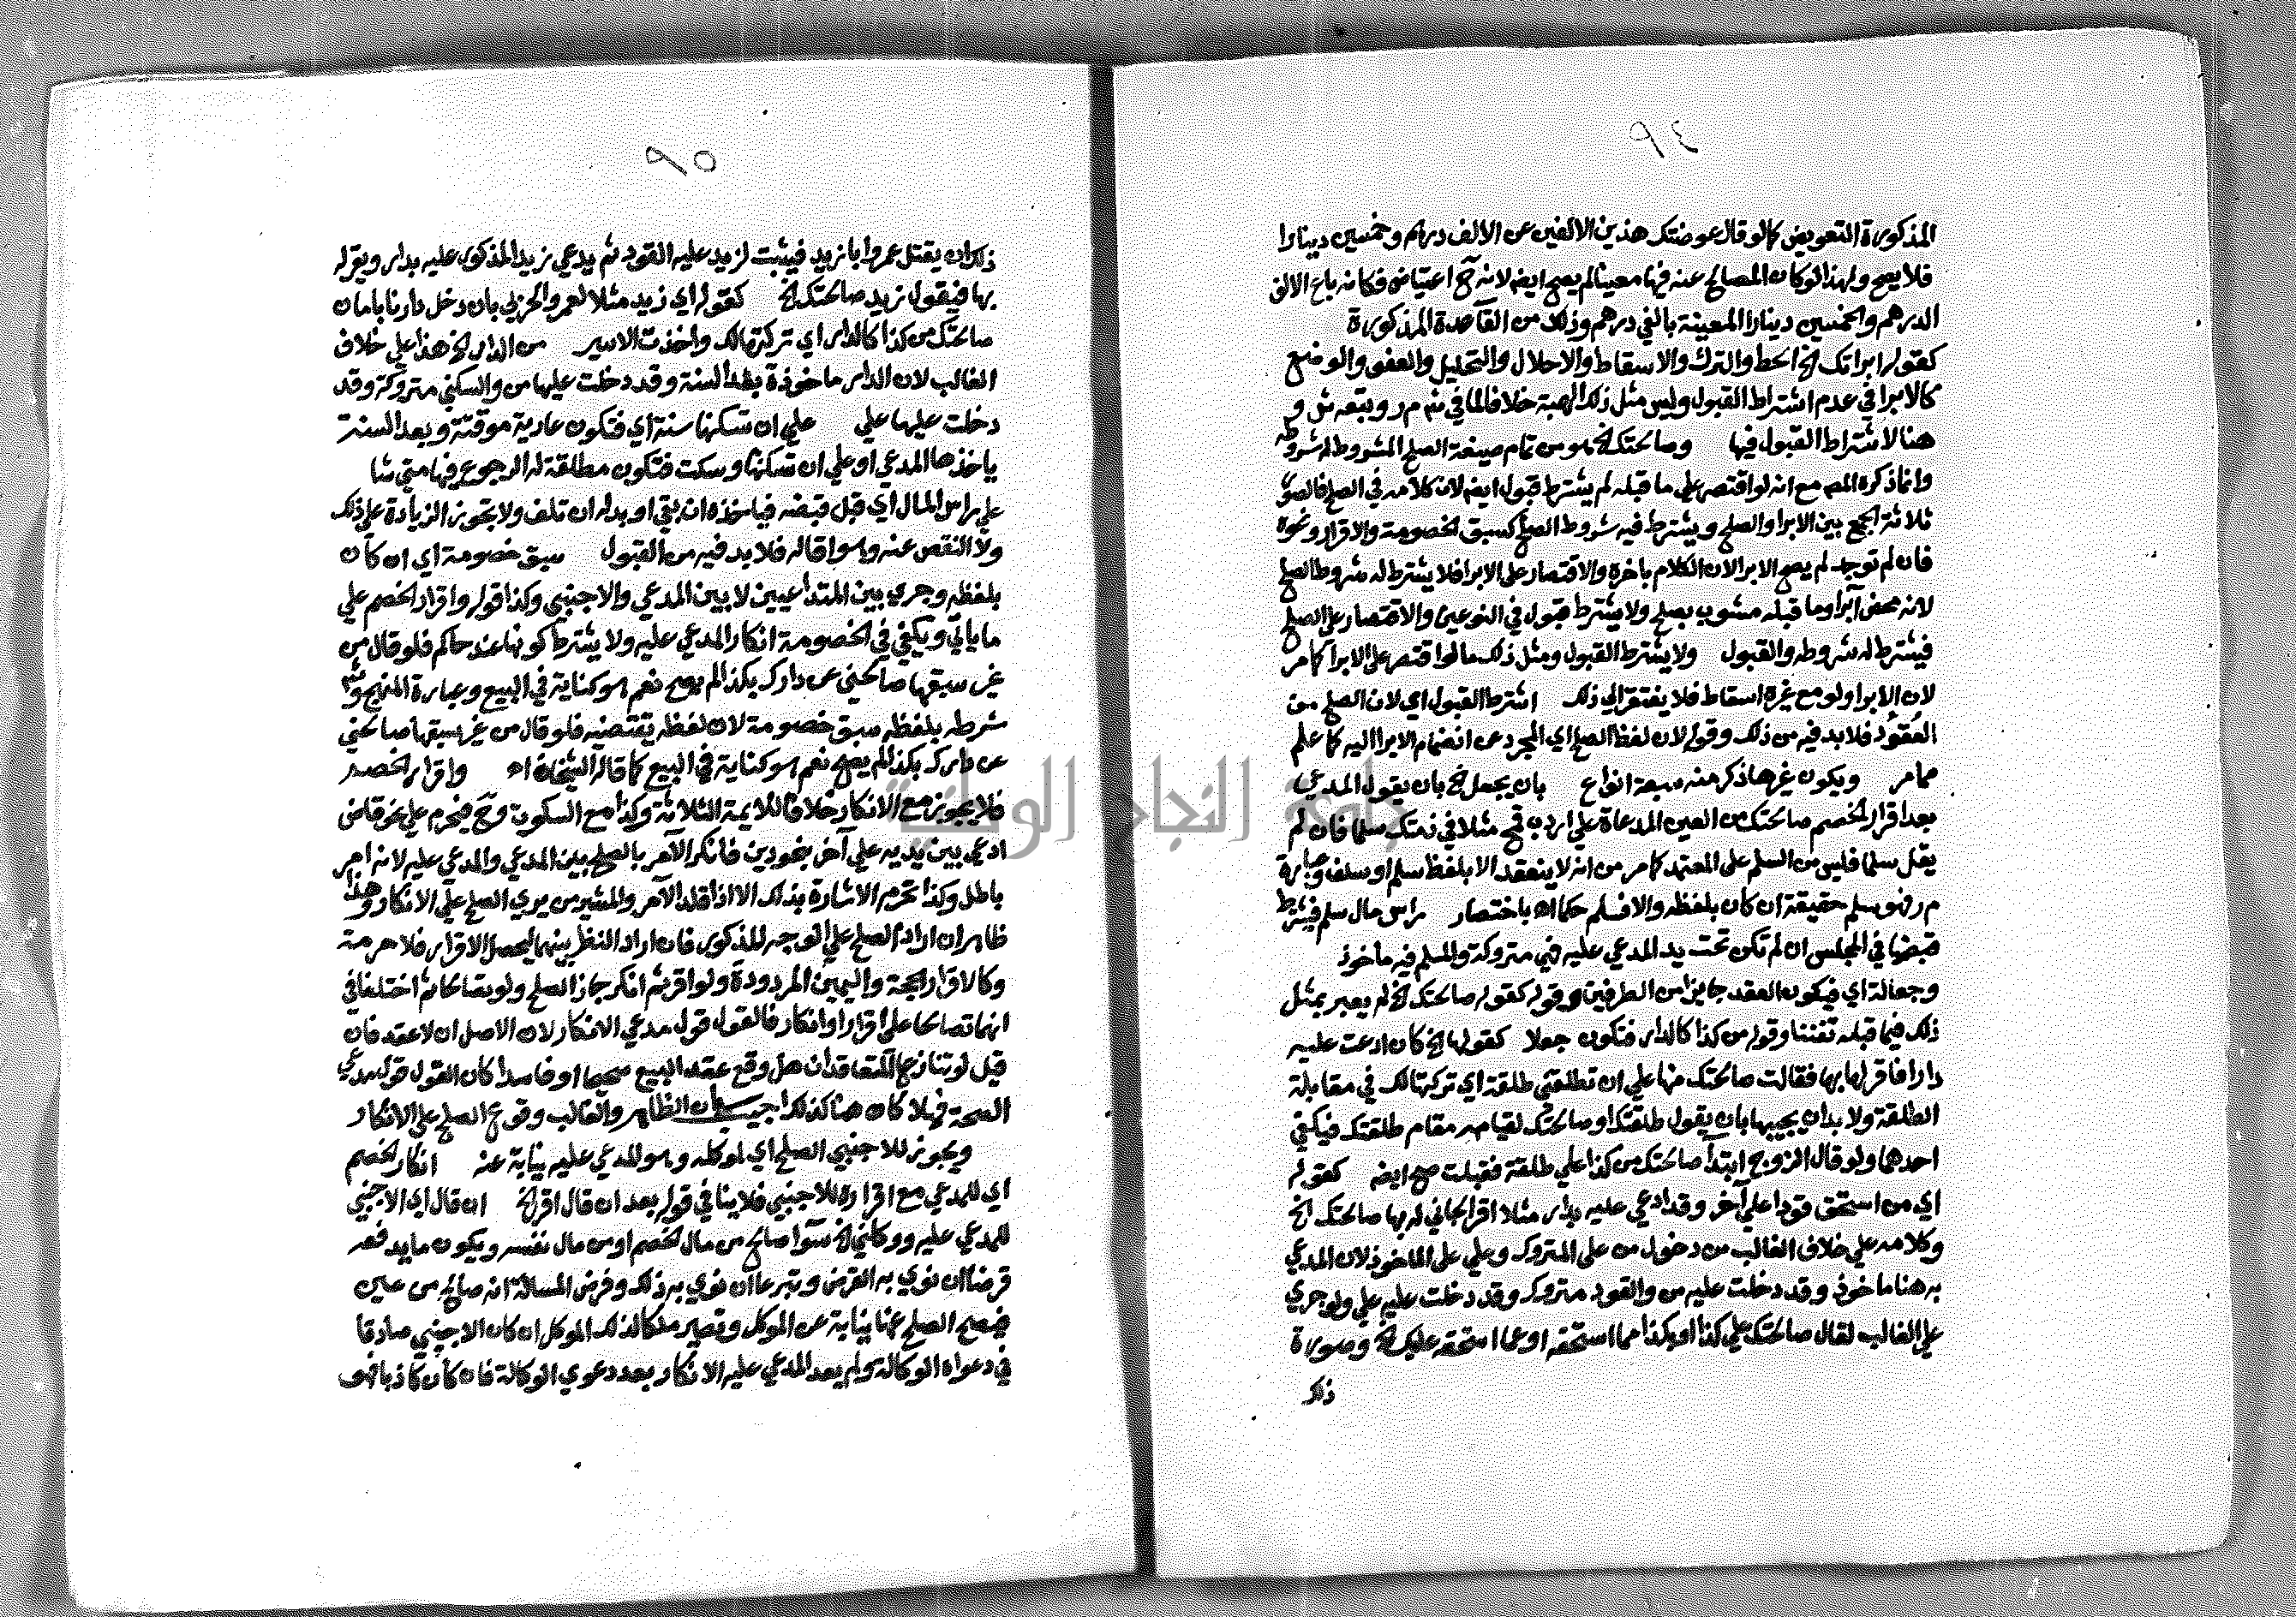 ٩٤
المذكورة التعويض كما لو قال عوضتك هذين الالفين عن الالف درهم وخمسين دينارا
فلا يصح ولهذا لو كان المصالح عنه فيها معينا لم يصح ايضا لانه ح اعتياض فكانه باع الالف
الدرهم والخمسين دينارا المعينة بالفي درهم وذلك من القاعدة المذكورة
كقوله ابراتك الخ الحط والترك والاسقاط والاحلال والتحليل والعفو والوضع
كالابرا في عدم اشتراط القبول وليس مثل ذلك الهبة خلافا لما في شم م ر وتبعه ش و
هنا لاشتراط القبول فيها وصالحتك الخ هو من تمام صيغة الصلح المشروط له شروطه
وانما ذكره المصم مع انه لو اقتصر على ما قبله لم يشترط قبول ايضا لان كلامه في الصلح فالصور
ثلاثة الجمع بين الابرا والصلح ويشترط فيه شروط الصلح كسبق الخصومة والاقرار ونحوه
فان لم توجد لم يصح الابرا لان الكلام باخره والاقتصار على الابرا فلا يشترط له شروط الصلح
لانه محض ابرا وما قبله مشوب بصلح ولا يشترط قبول في النوعين والاقتصار على الصلح
فيشترط له شروطه والقبول ولا يشترط القبول ومثل ذلك ما لو اقتصر على الابرا كما مر
لان الابرا ولو مع غيره اسقاط فلا يفتقر الي ذلك اشترط القبول اي لان الصلح من
العقود فلا بد فيه من ذلك وقوله لان لفظ الصلح اي المجرد عن انضمام الابرا اليه كما علم
مما مر ويكون غيرها ذكر منه سبعة انواع بان يجعل الخ بان يقول المدعي
بعد اقرار الخصم صالحتك من العين المدعاة علي اردب قمح مثلا في ذمتك سلما فان لم
يقل سلما فليس من السلم على المعتمد كما مر من انه لا ينعقد الا بلفظ سلم او سلف وعبارة
م ر فهو سلم حقيقة ان كان بلفظه والا فسلم حكما اه باختصار راس مال سلم فيشترط
قبضها في المجلس ان لم تكن تحت يد المدعي عليه فهي متروكة والمسلم فيه ماخوذ
وجعالة اي فيكون العقد جايزا من الطرفين وقوله كقوله صالحتك الخ لم يعبر بمثل
ذلك فيما قبله تفننا وقوله من كذا كالدار فتكون جعلا كقولها الخ كان ادعت عليه
دارا فاقر لها بها فقالت صالحتك منها علي ان تطلقني طلقة اي تركتها لك في مقابلة
الطلقة ولا بد ان يجيبها بان يقول طلقتك او صالحتك لقيامه مقام طلقتك فيكفي
احدهما ولو قال الزوج ابتدأ صالحتك من كذا علي طلقة فقبلت صح ايضا كقوله
اي من استحق قودا علي آخر وقد ادعي عليه بدار مثلا اقر الجاني له بها صالحتك الخ
وكلامه علي خلاف الغالب من دخول من على المتروك وعلي على الماخوذ لان المدعي
به هنا ماخوذ وقد دخلت عليه من والقود متروك وقد دخلت عليه علي ولو جري
علي الغالب لقال صالحتك علي كذا او بكذا مما استحقه او عما استحقه عليك الخ وصورة
ذلك
٩٥
ذلك ان يقتل عمرو ابا زيد فيثبت لزيد عليه القود ثم يدعي زيد المذكور عليه بدار ويقر له
بها فيقول زيد صالحتك الخ كقوله اي زيد مثلا لعمرو الحربي بان دخل دارنا بامان
صالحتك من كذا كالدار اي تركتها لك واخذت الاسير من الدار الخ هذا علي خلاف
الغالب لان الدار ماخوذة بعد السنة وقد دخلت عليها من والسكني متروكة وقد
دخلت عليها علي علي ان تسكنها سنة اي فتكون عارية موقتة وبعد السنة
ياخذها المدعي او علي ان تسكنها وسكت فتكون مطلقة له الرجوع فيها متي شا
علي راس المال اي قبل قبضه فياخذه ان بقي او بدله ان تلف ولا يجوز الزيادة علي ذلك
ولا النقص عنه وهو اقاله فلا بد فيه من القبول سبق خصومة اي ان كان
بلفظه وجري بين المتداعيين لا بين المدعي والاجنبي وكذا قوله واقرار الخصم علي
ما ياتي ويكفي في الخصومة انكار المدعي عليه ولا يشترط كونها عند حاكم فلو قال من
غير سبقها صالحني عن دارك بكذا لم يصح نعم هو كناية في البيع وعبارة المنهج وشم
شرطه بلفظه سبق خصومة لان لفظه يقتضيه فلو قال من غير سبقها صالحني
عن دارك بكذا لم يصح نعم هو كناية في البيع كما قاله الشيخان اه واقرار الخصم
فلا يجوز مع الانكار خلافا للايمة الثلاثة وكذا مع السكوت وح فيحرم علي نحو قاض
ادعي بين يديه علي آخر بنحو دين فانكر الامر بالصلح بين المدعي والمدعي عليه لانه امر
باطل وكذا تحرم الاشارة بذلك الا اذا قلد الآمر والمشير من يري الصلح علي الانكار وهذا
ظاهر ان اراد الصلح علي الوجه المذكور فان اراد النظر بينهما ليحصل الاقرار فلا حرمة
وكالاقرار الحجة واليمين المردودة ولو اقر ثم انكر جاز الصلح ولو تصالحا ثم اختلفا في
انهما تصالحا علي اقرار او انكار فالقول قول مدعي الانكار لان الاصل ان لا عقد فان
قيل لو تنازع المتعاقدان هل وقع عقد البيع صحيحا او فاسدا كان القول قول مدعي
الصحة فهلا كان هنا كذلك اجيب بان الظاهر والغالب وقوع الصلح علي الانكار
ويجوز للاجنبي الصلح اي لموكله وهو المدعي عليه نيابة عنه انكار الخصم
اي للمدعي مع اقراره للاجنبي فلا ينافي قوله بعد ان قال اقر الخ ان قال اي الاجنبي
للمدعي عليه ووكلني الخ سوآ صالح من مال الخصم او من مال نفسه ويكون ما يدفعه
قرضا ان نوي به القرض وتبرعا ان نوي به ذلك وفرض المسالة انه صالح من عين
فيصح الصلح عنها نيابة عن الموكل وتصير ملكا لذلك الموكل ان كان الاجنبي صادقا
في دعواه الوكالة ولم يعد المدعي عليه الانكار بعد دعوي الوكالة فان كان كاذبا فهو
جامعة النجاح الوطنية